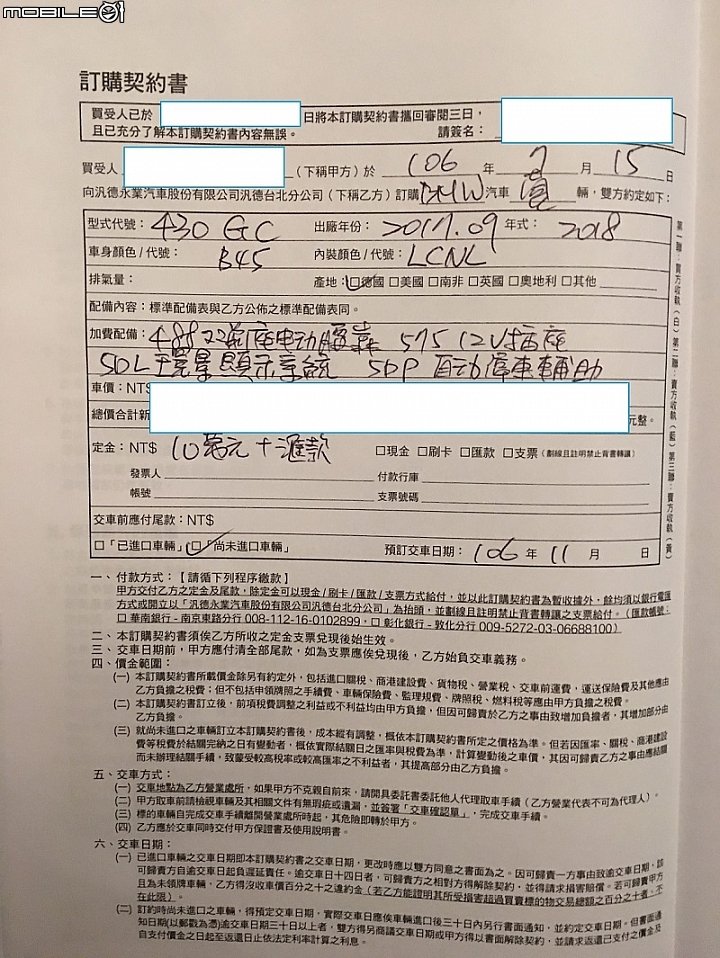 MOBILE01
訂購契約書
買受人已於 日將本訂購契約書攜回審閱三日，
且已充分了解本訂購契約書內容無誤。 請簽名：
買受人 （下稱甲方）於 106 年 7 月 15 日
向汎德永業汽車股份有限公司汎德台北分公司（下稱乙方）訂購 BMW 汽車 壹 輛，雙方約定如下：
型式代號： 430 GC 出廠年份： 2017.09 年式： 2018
車身顏色 / 代號： B45 內裝顏色 / 代號： LCNL
排氣量： 產地：☑德國 □美國 □南非 □英國 □奧地利 □其他
配備內容：標準配備表與乙方公佈之標準配備表同。
加費配備： 488 双前座电动腰靠 575 12V插座
5DL 環景顯示系統 5DP 自动停車輔助
車價：NT$
總價合計新 元整。
定金：NT$ 10萬元 + 滙款 □現金 □刷卡 □匯款 □支票（劃線且註明禁止背書轉讓）
發票人 付款行庫
帳號 支票號碼
交車前應付尾款：NT$
□「已進口車輛」☑「尚未進口車輛」 預訂交車日期： 106 年 11 月 日
第一聯：買方收執（白）第二聯：賣方收執（藍）第三聯：賣方收執（黃）
一、付款方式：【請循下列程序繳款】
甲方交付乙方之定金及尾款，除定金可以現金 / 刷卡 / 匯款 / 支票方式給付，並以此訂購契約書為暫收據外，餘均須以銀行電匯
方式或開立以「汎德永業汽車股份有限公司汎德台北分公司」為抬頭，並劃線且註明禁止背書轉讓之支票給付。（匯款帳號：
□ 華南銀行 - 南京東路分行 008-112-16-0102899，□ 彰化銀行 - 敦化分行 009-5272-03-06688100）
二、本訂購契約書須俟乙方所收之定金支票兌現後始生效。
三、交車日期前，甲方應付清全部尾款，如為支票應俟兌現後，乙方始負交車義務。
四、價金範圍：
(一) 本訂購契約書所載價金除另有約定外，包括進口關稅、商港建設費、貨物稅、營業稅、交車前運費，運送保險費及其他應由
乙方負擔之稅費；但不包括申領牌照之手續費、車輛保險費、監理規費、牌照稅、燃料稅等應由甲方負擔之稅費。
(二) 本訂購契約書訂立後，前項稅費調整之利益或不利益均由甲方負擔，但因可歸責於乙方之事由致增加負擔者，其增加部分由
乙方負擔。
(三) 就尚未進口之車輛訂立本訂購契約書後，成本縱有調整，概依本訂購契約書所定之價格為準。但若因匯率、關稅、商港建設
費等稅費於結關完納之日有變動者，概依實際結關日之匯率與稅費為準，計算變動後之車價，其因可歸責乙方之事由應結關
而未辦理結關手續，致蒙受較高稅率或較高匯率之不利益者，其提高部分由乙方負擔。
五、交車方式：
(一) 交車地點為乙方營業處所，如果甲方不克親自前來，請開具委託書委託他人代理取車手續（乙方營業代表不可為代理人）。
(二) 甲方取車前請檢視車輛及其相關文件有無瑕疵或遺漏，並簽署「交車確認單」，完成交車手續。
(三) 標的車輛自完成交車手續離開營業處所時起，其危險即轉於甲方。
(四) 乙方應於交車同時交付甲方保證書及使用說明書。
六、交車日期：
(一) 已進口車輛之交車日期即本訂購契約書之交車日期，更改時應以雙方同意之書面為之。因可歸責一方事由致逾交車日期，該
可歸責方自逾交車日起負遲延責任。逾交車日十四日者，可歸責方之相對方得解除契約，並得請求損害賠償。若可歸責甲方
且為未領牌車輛，乙方得沒收車價百分之十之違約金（若乙方能證明其所受損害超過買賣標的物交易總額之百分之十者，不
在此限）。
(二) 訂約時尚未進口之車輛，得預定交車日期，實際交車日應俟車輛進口後三十日內另行書面通知，並約定交車日期。但書面通
知日期(以郵戳為憑)逾交車日期三十日以上者，雙方得另商議交車日期或甲方得以書面解除契約，並請求返還已支付之價金及
自支付價金之日起至返還日止依法定利率計算之利息。